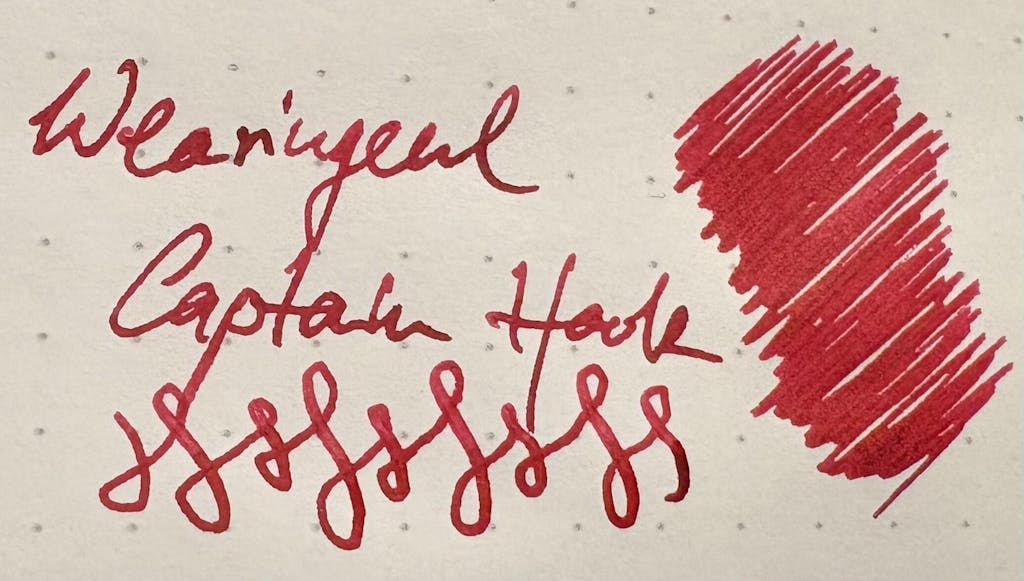 Wearingeul
Captain Hook